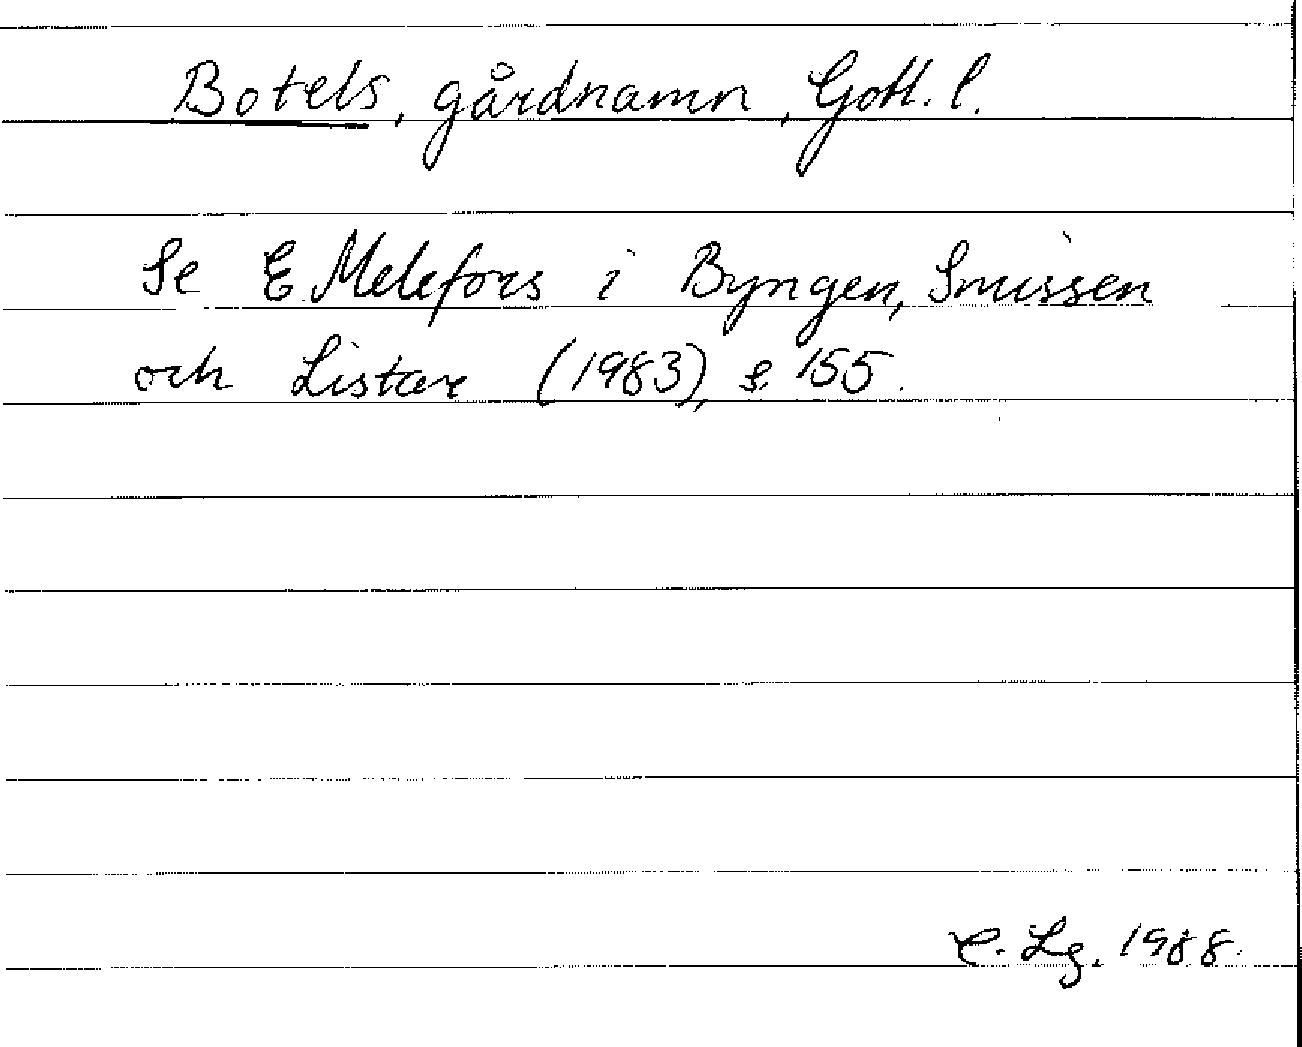 Botels, gårdnamn, Gotl. l.
Se E Melefors i Byngen, Smissen
och Listare (1983), s. 155.
C. Lg. 1988.